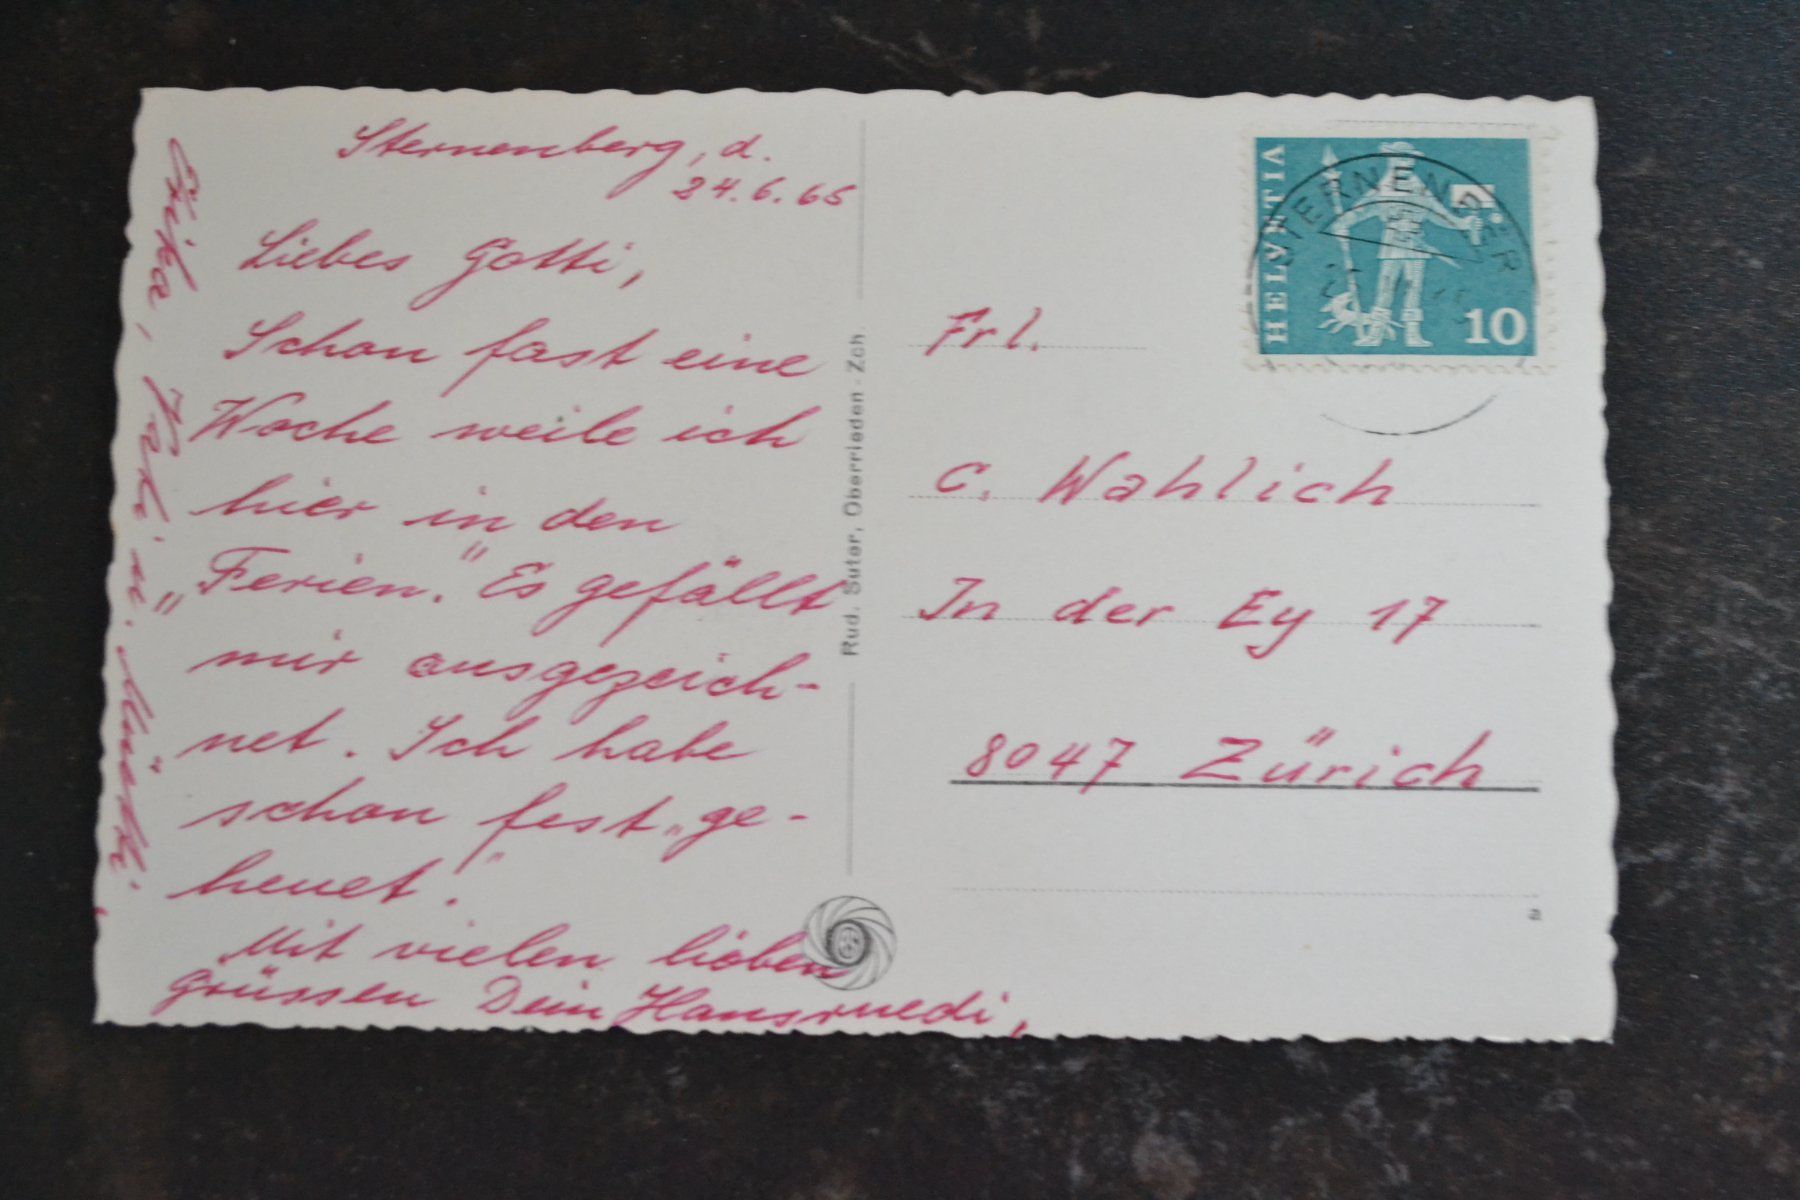 Sternenberg, d.
24.6.65
Liebes Gotti,
Schon fast eine
Woche weile ich
hier in den
„Ferien." Es gefällt
mir ausgezeich-
net. Ich habe
schon fest „ge-
heuet".
Mit vielen lieben
Grüssen Dein Hansruedi,
u. Müeti.
Rud. Suter, Oberrieden - Zch.
HELVETIA
10
Frl.
C. Wahlich
In der Ey 17
8047 Zürich